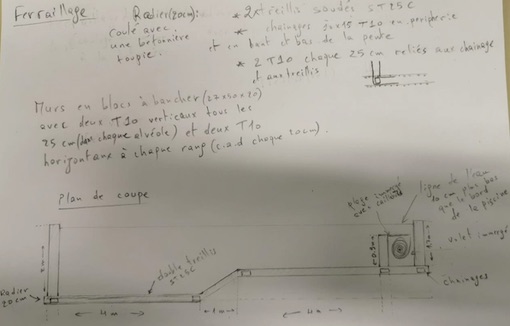 Ferraillage
Radier(20cm):
coulé avec
une bétonnière
toupie.
* 2x treillis soudés ST25C
* chainages 15x15 T10 en périphérie
et en haut et bas de la pente
* 2 T10 chaque 25 cm reliés aux chainage
et aux treillis
Murs en blocs à bancher (27x50x20)
avec deux T10 verticaux tous les
25 cm (dans chaque alvéole) et deux T10
horizontaux à chaque rang (c.a.d chaque 20cm).
Plan de coupe
plage immergé
avec caillebotis
ligne de l'eau
10 cm plus bas
que le bord
de la piscine
volet immergé
chainages
double treillis
ST25C
Radier
20cm
4m
1m
4m